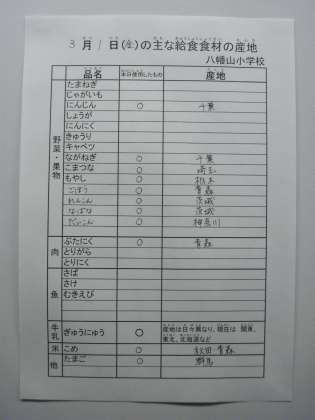 3月1日(金)の主な給食食材の産地
八幡山小学校
品名 本日使用したもの 産地
野菜・果物
たまねぎ
じゃがいも
にんじん ○ 千葉
しょうが
にんにく
きゅうり
キャベツ
ながねぎ ○ 千葉
こまつな ○ 埼玉
もやし ○ 栃木
ごぼう ○ 青森
れんこん ○ 茨城
なばな ○ 茨城
だいこん ○ 神奈川
肉
ぶたにく ○ 青森
とりがら
とりにく
魚
さば
さけ
むきえび
牛乳 ぎゅうにゅう ○ 産地は日々異なり、現在は 関東、
東北、北海道など
米 こめ ○ 秋田 青森
他 たまご ○ 群馬